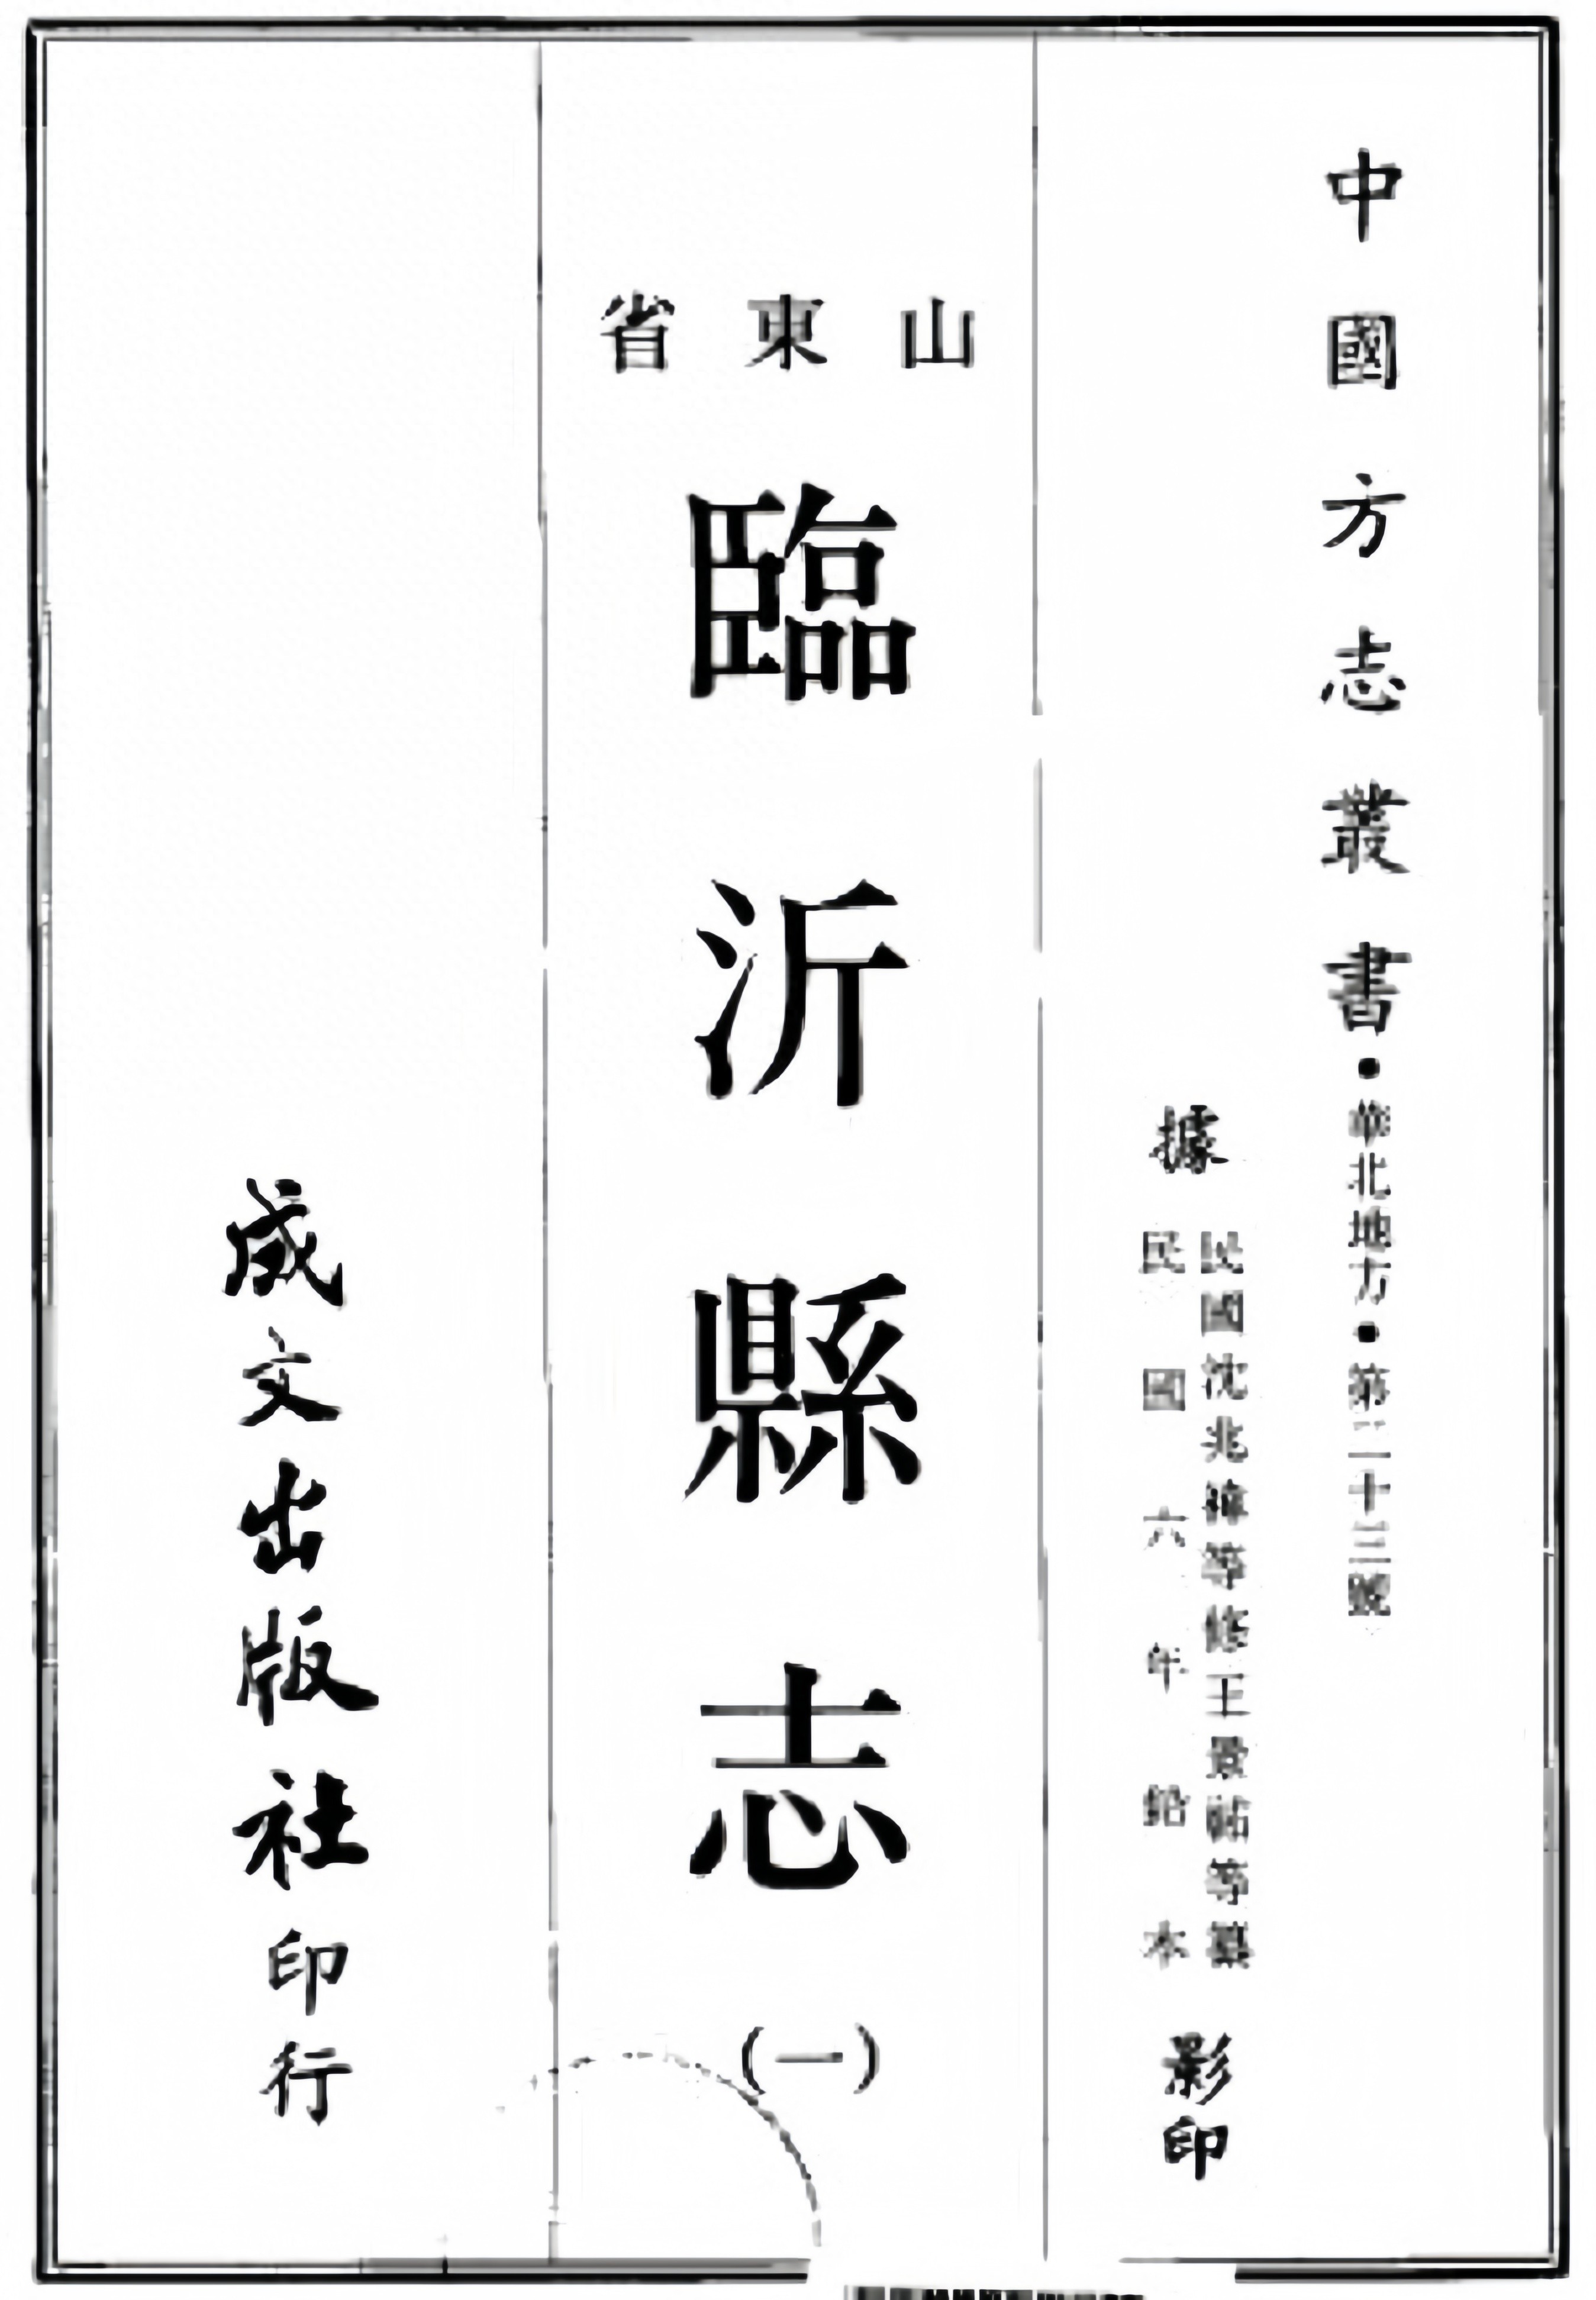 中國方志叢書•華北地方•第二十三號
據
民國沈兆褘等修王景祜等纂
民國六年鉛本
影印
山東省
臨沂縣志
(一)
成文出版社印行